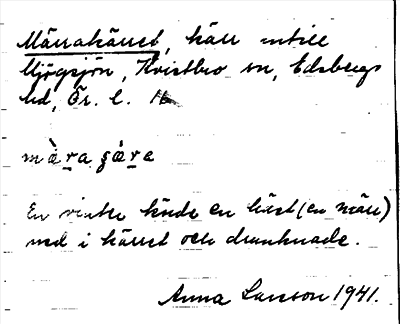 Märrakärret, kärr intill
Mjögsjön, Kvistbro sn, Edsbergs
hd, Ör. l.
mὰra ʂάra
En vinter körde en häst (en märr)
ned i kärret och drunknade.
Anna Larsson 1941.